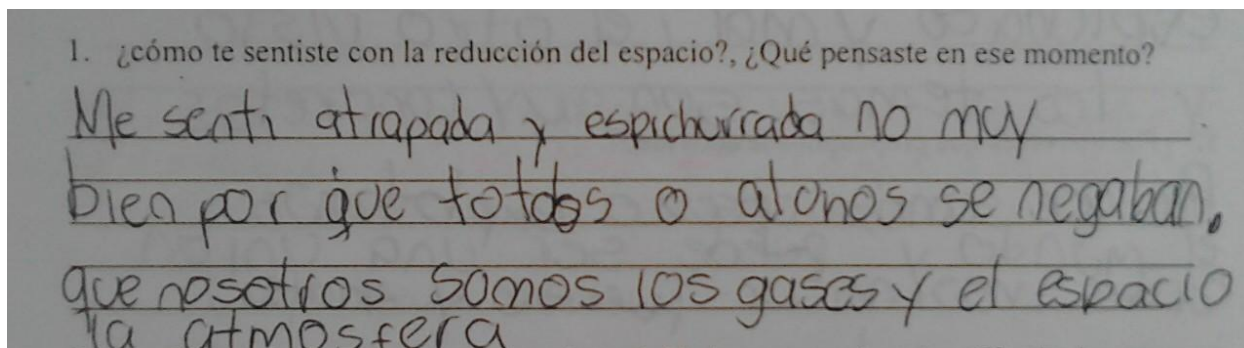 1. ¿cómo te sentiste con la reducción del espacio?, ¿Qué pensaste en ese momento?
Me senti atrapada y espichurrada no muy
bien por que totdos o alonos se negaban.
que nosotros somos los gases y el espacio
la atmosfera